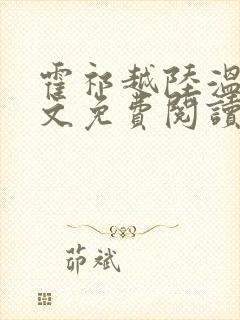 霍祁越陸溫
文免費閱讀
茆斌